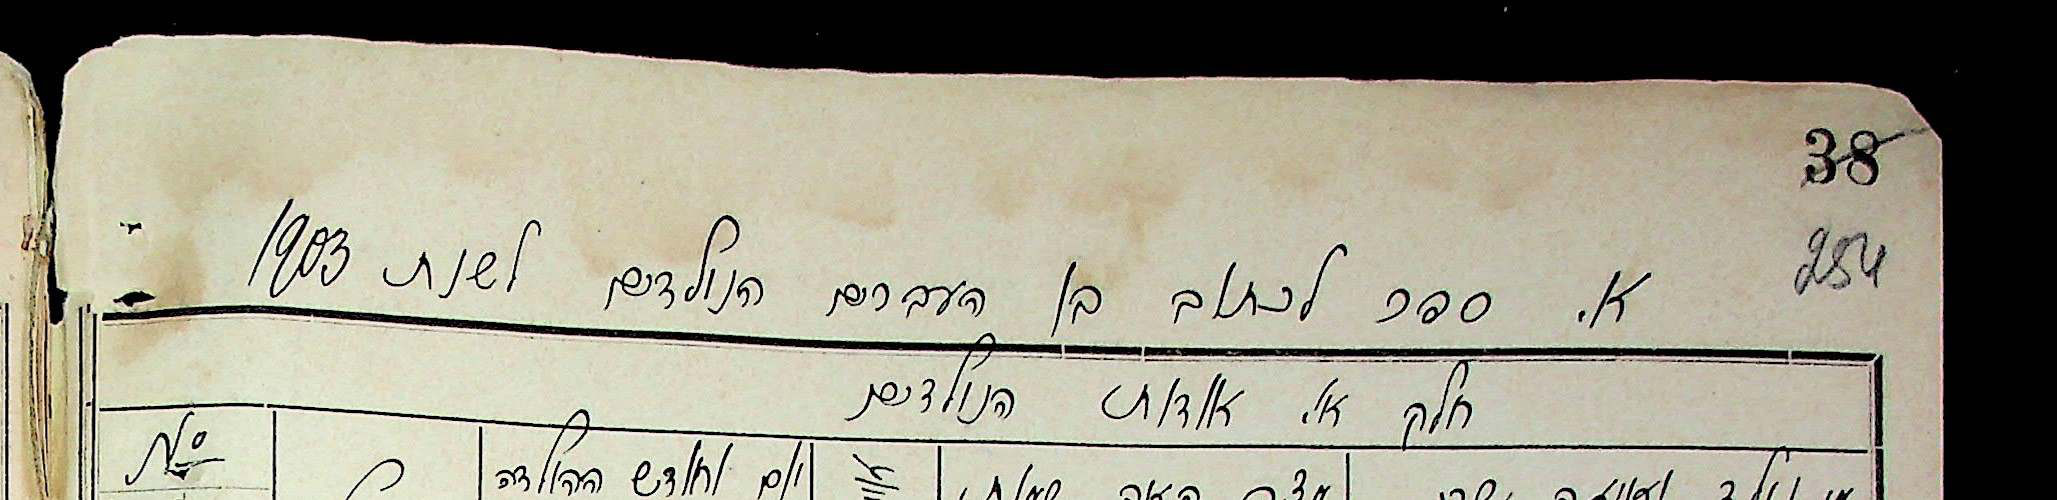 38
254
א. ספר לכתוב בו העברים הנולדים לשנת 1903
חלק א׳ אודות הנולדים
№
יום וחודש ההולדה